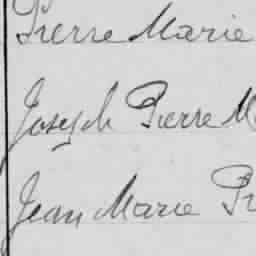 Pierre Marie
Joseph Pierre M
Jean Marie Pi